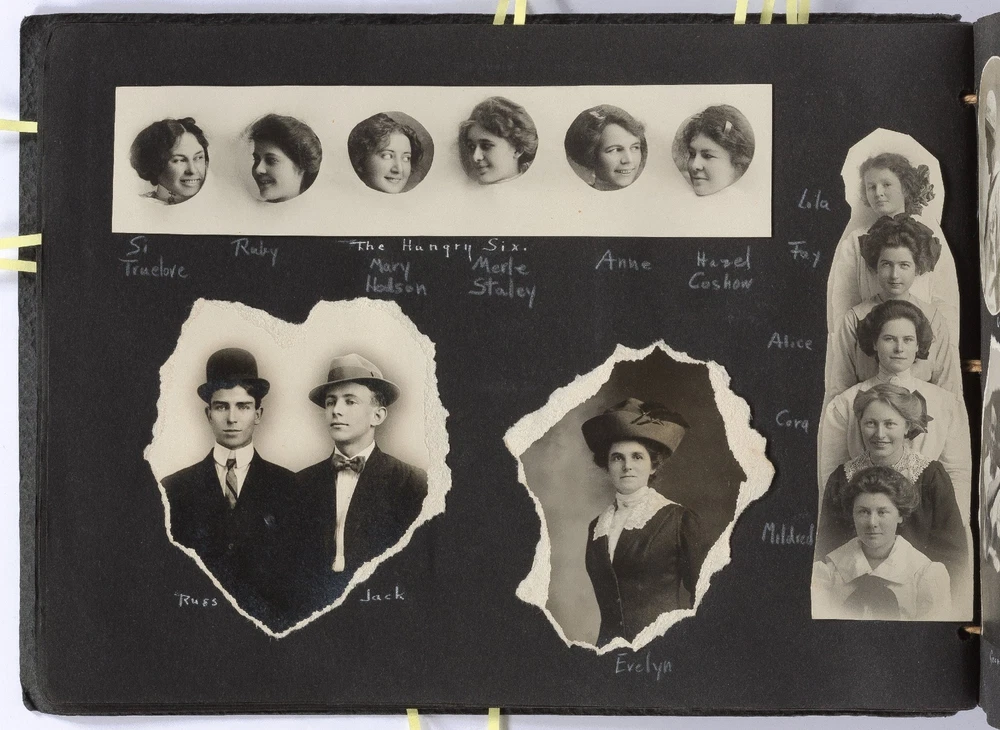 Si
Truelove
Ruby
The Hungry Six.
Mary
Hodson
Merle
Staley
Anne
Hazel
Coshow
Lila
Fay
Alice
Cora
Mildred
Russ
Jack
Evelyn